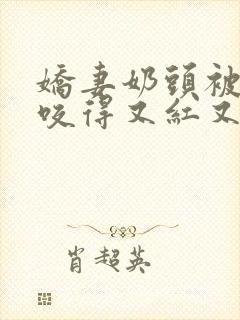 嬌妻奶頭被
咬得又紅又
肖超英